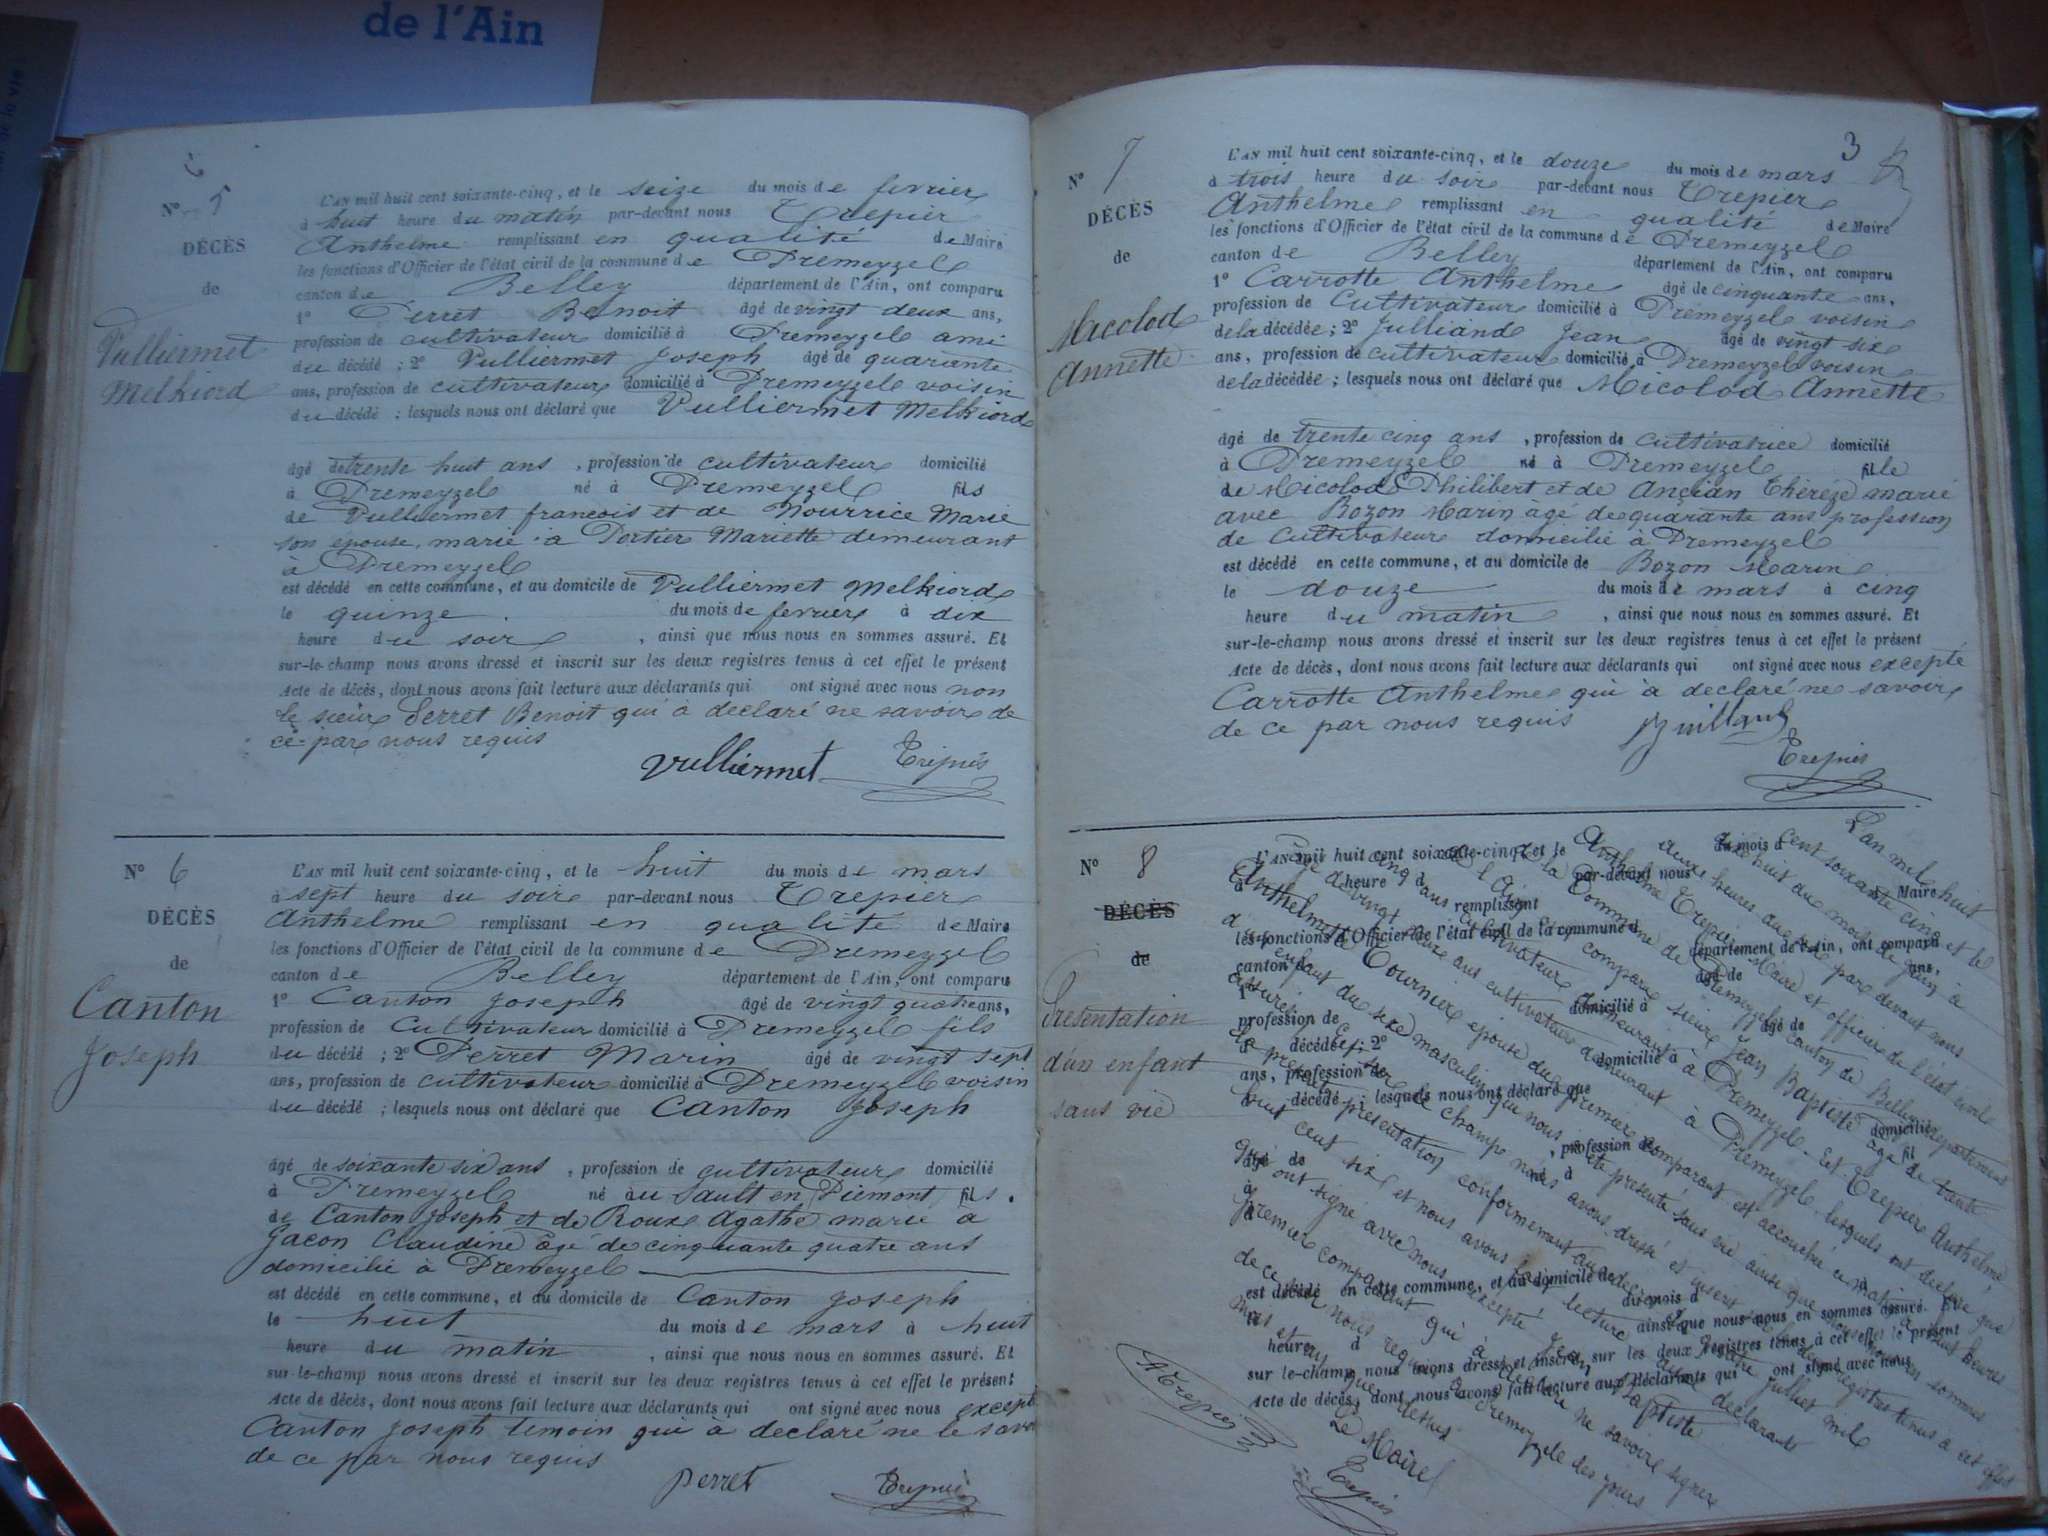 de l'Ain
N° 5
DÉCÈS
de
Vulliermet
Melkiord
L'AN mil huit cent soixante-cinq, et le seize du mois de fevrier
à huit heure du matin par-devant nous Trepier
Anthelme remplissant en qualité de Maire
les fonctions d'Officier de l'état civil de la commune de Premeyzel
canton de Belley département de l'Ain, ont comparu
1° Perret Benoit âgé de vingt deux ans,
profession de cultivateur domicilié à Premeyzel ami
du décédé ; 2° Vulliermet Joseph âgé de quarante
ans, profession de cultivateur domicilié à Premeyzel voisin
du décédé ; lesquels nous ont déclaré que Vulliermet Melkiord
âgé de trente huit ans , profession de cultivateur domicilié
à Premeyzel né à Premeyzel fils
de Vulliermet francois et de Nourrice Marie
son epouse, marie à Portier Mariette demeurant
a Premeyzel
est décédé en cette commune, et au domicile de Vulliermet Melkiord
le quinze du mois de fevrier à dix
heure du soir , ainsi que nous nous en sommes assuré. Et
sur-le-champ nous avons dressé et inscrit sur les deux registres tenus à cet effet le présent
Acte de décès, dont nous avons fait lecture aux déclarants qui ont signé avec nous non
le sieur Perret Benoit qui à declaré ne savoir de
ce par nous requis
Vulliermet Trepier
N° 6
DÉCÈS
de
Canton
Joseph
L'AN mil huit cent soixante-cinq, et le huit du mois de mars
à sept heure du soir par-devant nous Trepier
Anthelme remplissant en qualité de Maire
les fonctions d'Officier de l'état civil de la commune de Premeyzel
canton de Belley département de l'Ain, ont comparu
1° Canton Joseph âgé de vingt quatre ans,
profession de Cultivateur domicilié à Premeyzel fils
du décédé ; 2° Perret Marin âgé de vingt sept
ans, profession de cultivateur domicilié à Premeyzel voisin
du décédé ; lesquels nous ont déclaré que Canton Joseph
âgé de soixante six ans , profession de cultivateur domicilié
à Premeyzel né au Sault en Piemont fils.
de Canton Joseph et de Roux Agathe marie à
Jacon Claudine âgé de cinquante quatre ans
domicilié à Premeyzel
est décédé en cette commune, et au domicile de Canton Joseph
le huit du mois de mars à huit
heure du matin , ainsi que nous nous en sommes assuré. Et
sur-le-champ nous avons dressé et inscrit sur les deux registres tenus à cet effet le présent
Acte de décès, dont nous avons fait lecture aux déclarants qui ont signé avec nous except
Canton Joseph temoin qui à declaré ne le savoi
de ce par nous requis
Perret Trepier
3
N° 7
DÉCÈS
de
Micolod
Annette
L'AN mil huit cent soixante-cinq, et le douze du mois de mars
à trois heure du soir par-devant nous Trepier
Anthelme remplissant en qualité de Maire
les fonctions d'Officier de l'état civil de la commune de Premeyzel
canton de Belley département de l'Ain, ont comparu
1° Carrotte Anthelme âgé de cinquante ans,
profession de Cultivateur domicilié à Premeyzel voisin
de la décédée ; 2° Julliand Jean âgé de vingt six
ans, profession de cultivateur domicilié à Premeyzel voisin
de la décédée ; lesquels nous ont déclaré que Micolod Annette
âgé de trente cinq ans , profession de cultivatrice domicilié
à Premeyzel né à Premeyzel fille
de Micolod Philibert et de Ancian Thérèze marié
avec Bozon Marin âgé de quarante ans profession
de Cultivateur domicilié à Premeyzel
est décédé en cette commune, et au domicile de Bozon Marin
le douze du mois de mars à cinq
heure du matin , ainsi que nous nous en sommes assuré. Et
sur-le-champ nous avons dressé et inscrit sur les deux registres tenus à cet effet le présent
Acte de décès, dont nous avons fait lecture aux déclarants qui ont signé avec nous excepté
Carrotte Anthelme qui à declaré ne savoir
de ce par nous requis
Trepier
N° 8
DÉCÈS
de
Presentation
d'un enfant
sans vie
L'AN mil huit cent soixante-cinq, et le du mois d
à heure d par-devant nous
remplissant Maire
les fonctions d'Officier de l'état civil de la commune d
canton d département de l'Ain, ont comparu
1° âgé de ans,
profession de domicilié à
d décédé ; 2° âgé de
ans, profession de domicilié à
d décédé ; lesquels nous ont déclaré que
âgé de , profession de domicilié
à né à fil
est décédé en cette commune, et au domicile de
le du mois d à
heure d ainsi que nous nous en sommes assuré. Et
sur le-champ nous avons dressé et inscrit sur les deux registres tenus à cet effet le présent
Acte de décès, dont nous avons fait lecture aux déclarants qui ont signé avec nous
L'an mil huit
cent soixante cinq et le
dix huit du mois de juin à
par devant nous
Anthelme Trepier Maire et officier de l'état civil
de la Commune de Premeyzel canton de Belley departement
de l'Ain est comparu sieur Jean Baptiste âgé de trente
cinq ans cultivateur demeurant à Premeyzel Et Trepier Anthelme
âgé de vingt neuf ans cultivateur demeurant à Premeyzel lesquels ont declaré que
Anthelmette Tournier epouse du premier comparant est accouchée ce matin à huit heures
d'un enfant du sexe masculin qui nous a été presenté sans vie ainsi que nous nous en sommes
assurés Et sur le champ nous avons dressé et inseré sur les deux registres tenus a cet effet
la presente presentation conformement au decret du quatre juillet mil
huit cent six et nous avons fait lecture aux declarants
qui ont signé avec nous excepté Jean Baptiste
premier comparant qui à declaré ne savoir signer
de ce par nous requis à Premeyzel les jours
mois et an que dessus
Le Maire
Trepier
A Trepier